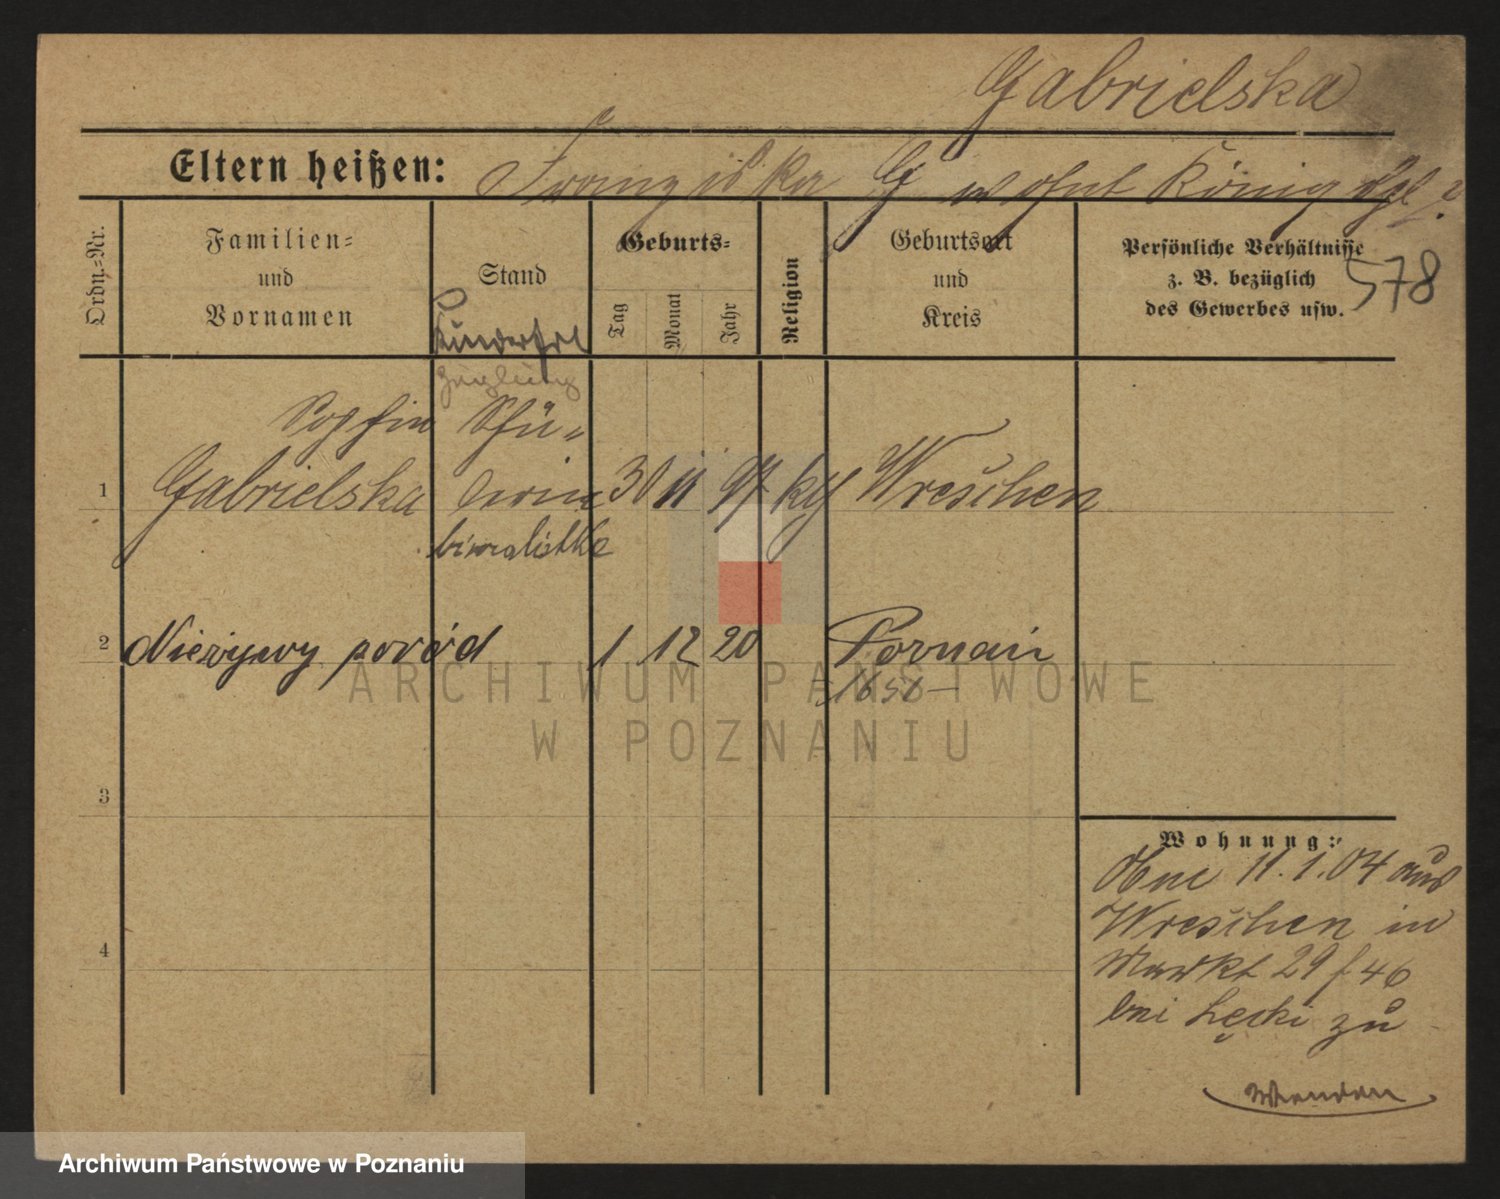 Gabrielska
Eltern heißen: Franziska G wohnt Königspl. 2
Ordn.-Nr.
Familien-
und
Vornamen
Stand
Geburts-
Tag
Monat
Jahr
Religion
Geburtsort
und
Kreis
Persönliche Verhältnisse
z. B. bezüglich
des Gewerbes usw.
578
Sophie Schü-
1 Gabrielska lerin 30 11 97 kg Wreschen
bieralistka
2 Nieżywy poród 1 12 20 Poznań
3
4
Wohnung:
11.1.04 aus
Wreschen in
Markt 29 f 46
bei Łęcki zu
ARCHIWUM PAŃSTWOWE
W POZNANIU
Archiwum Państwowe w Poznaniu